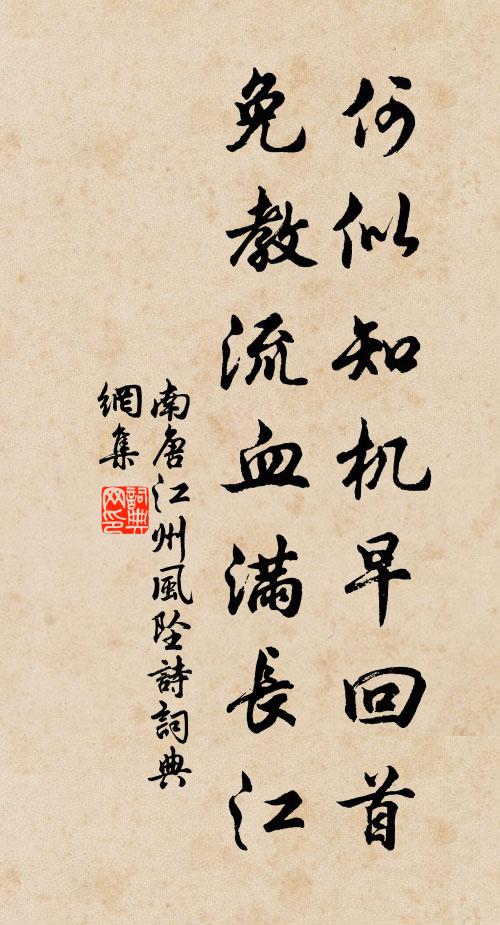 何似知机早回首
免教流血满長江
南唐江州風坠詩詞典
網集
詞典
网印